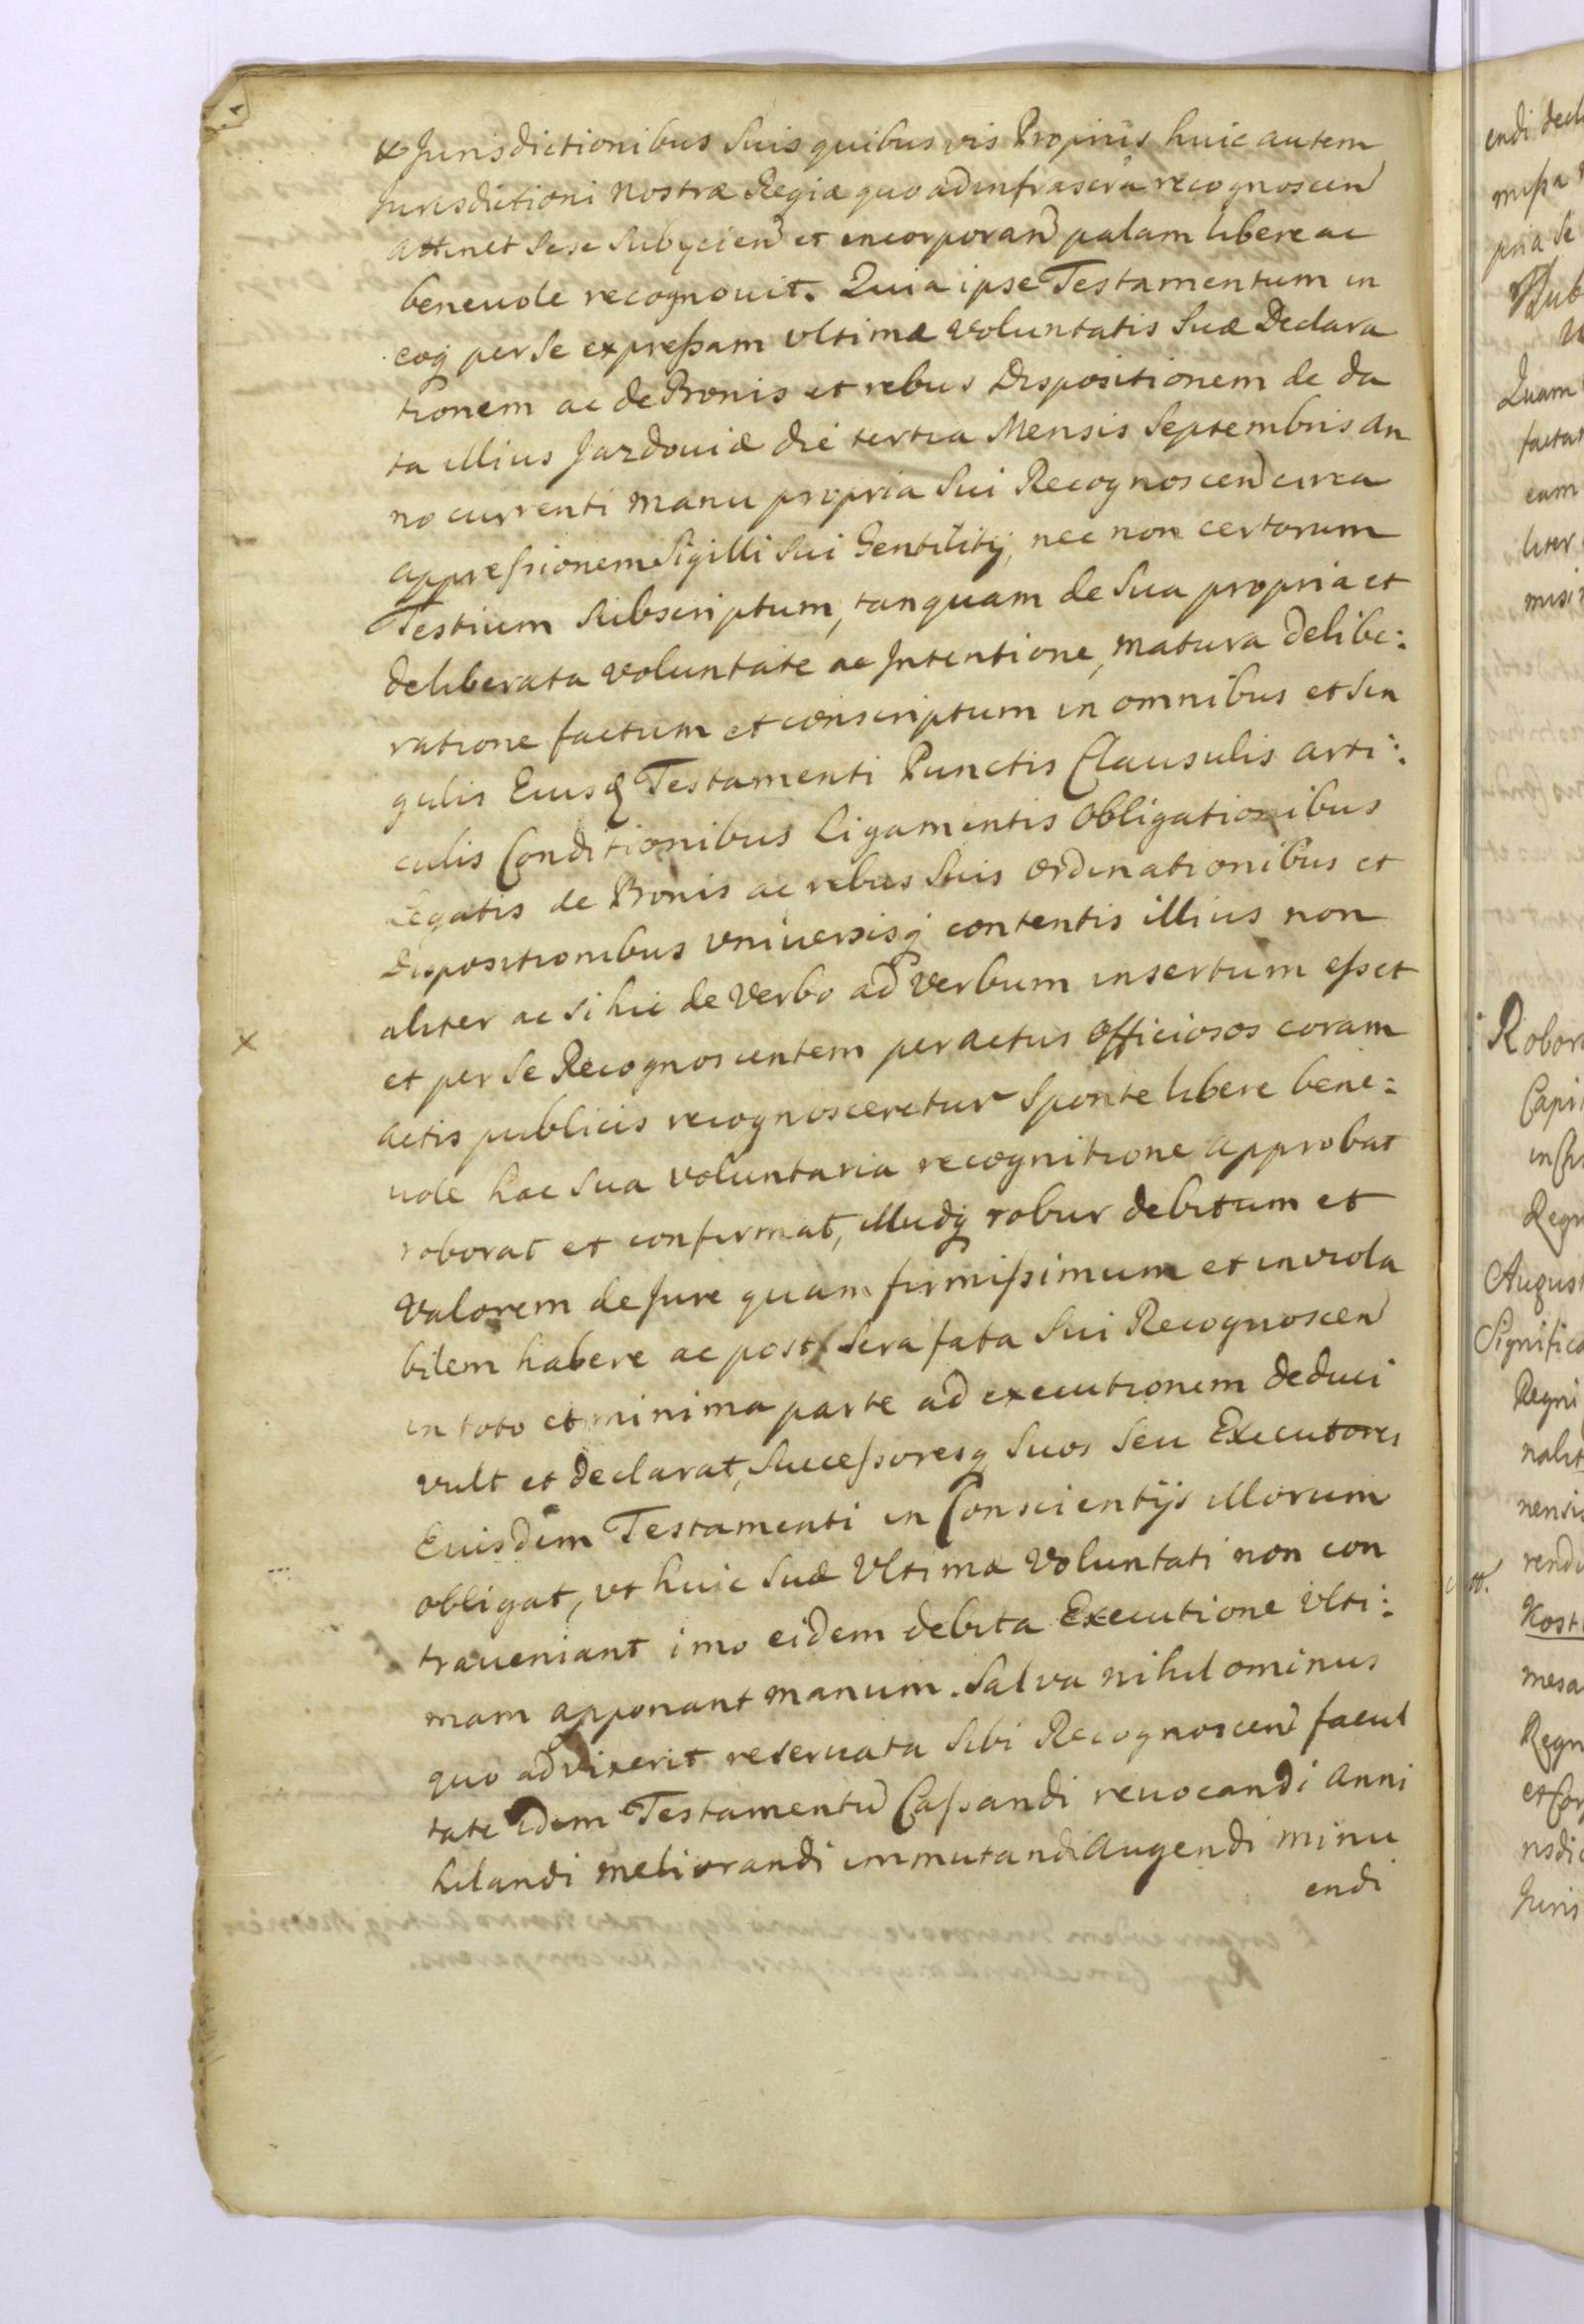 & Jurisdictionibus Suis quibus vis Proprijs huic autem
Jurisdictioni Nostræ Regiæ quo ad infrascra recognoscen
attinet Sese Subijcien et incorporan palam libere ac
beneuole recognouit. Quia ipse Testamentum in
eoq per Se expressam vltimæ Voluntatis Suæ Declara
tionem ac de Bonis et rebus Dispositionem de da
ta illius Jazdoviæ die tertia Mensis Septembris An
no currenti manu propria Sui Recognoscen circa
appressionem Sigilli Sui Gentilitij, nec non certorum
Testium Subscriptum, tanquam de Sua propria et
deliberata Voluntate ac Intentione, matura Delibe:
ratione factum et conscriptum in omnibus et Sin
gulis Eiusd Testamenti Punctis Clausulis arti:
culis Conditionibus Ligamentis Obligationibus
Legatis de Bonis ac rebus Suis Ordinationibus et
Dispositionibus Vniuersisq contentis illius non
aliter ac si hic de Verbo ad Verbum insertum esset
et per Se Recognoscentem per actus Officiosos coram
actis publicis recognosceretur Sponte libere bene:
uole hac Sua Voluntaria recognitione approbat
roborat et confirmat, illudq robur debitum et
Valorem de Jure quam firmissimum et inviola
bilem habere ac post Sera fata Sui Recognoscen
in toto et minima parte ad executionem deduci
vult et declarat, Successoresq Suos Seu Executores
Eiusdem Testamenti in Conscientijs illorum
obligat, vt huic Suæ Vltimæ Voluntati non con
traueniant imo eidem debita Executione Vlti:
mam apponant manum. Salva nihilominus
quo advixerit reseruata Sibi Recognoscen facul
tate idem Testamentu Cassandi reuocandi Anni
hilandi meliorandi immutandi Augendi minu
endi
x
endi
pria Se
Quam
eum
Robor
Regn
August
Regni
nensis
Kost
mesa
Regn
Juris